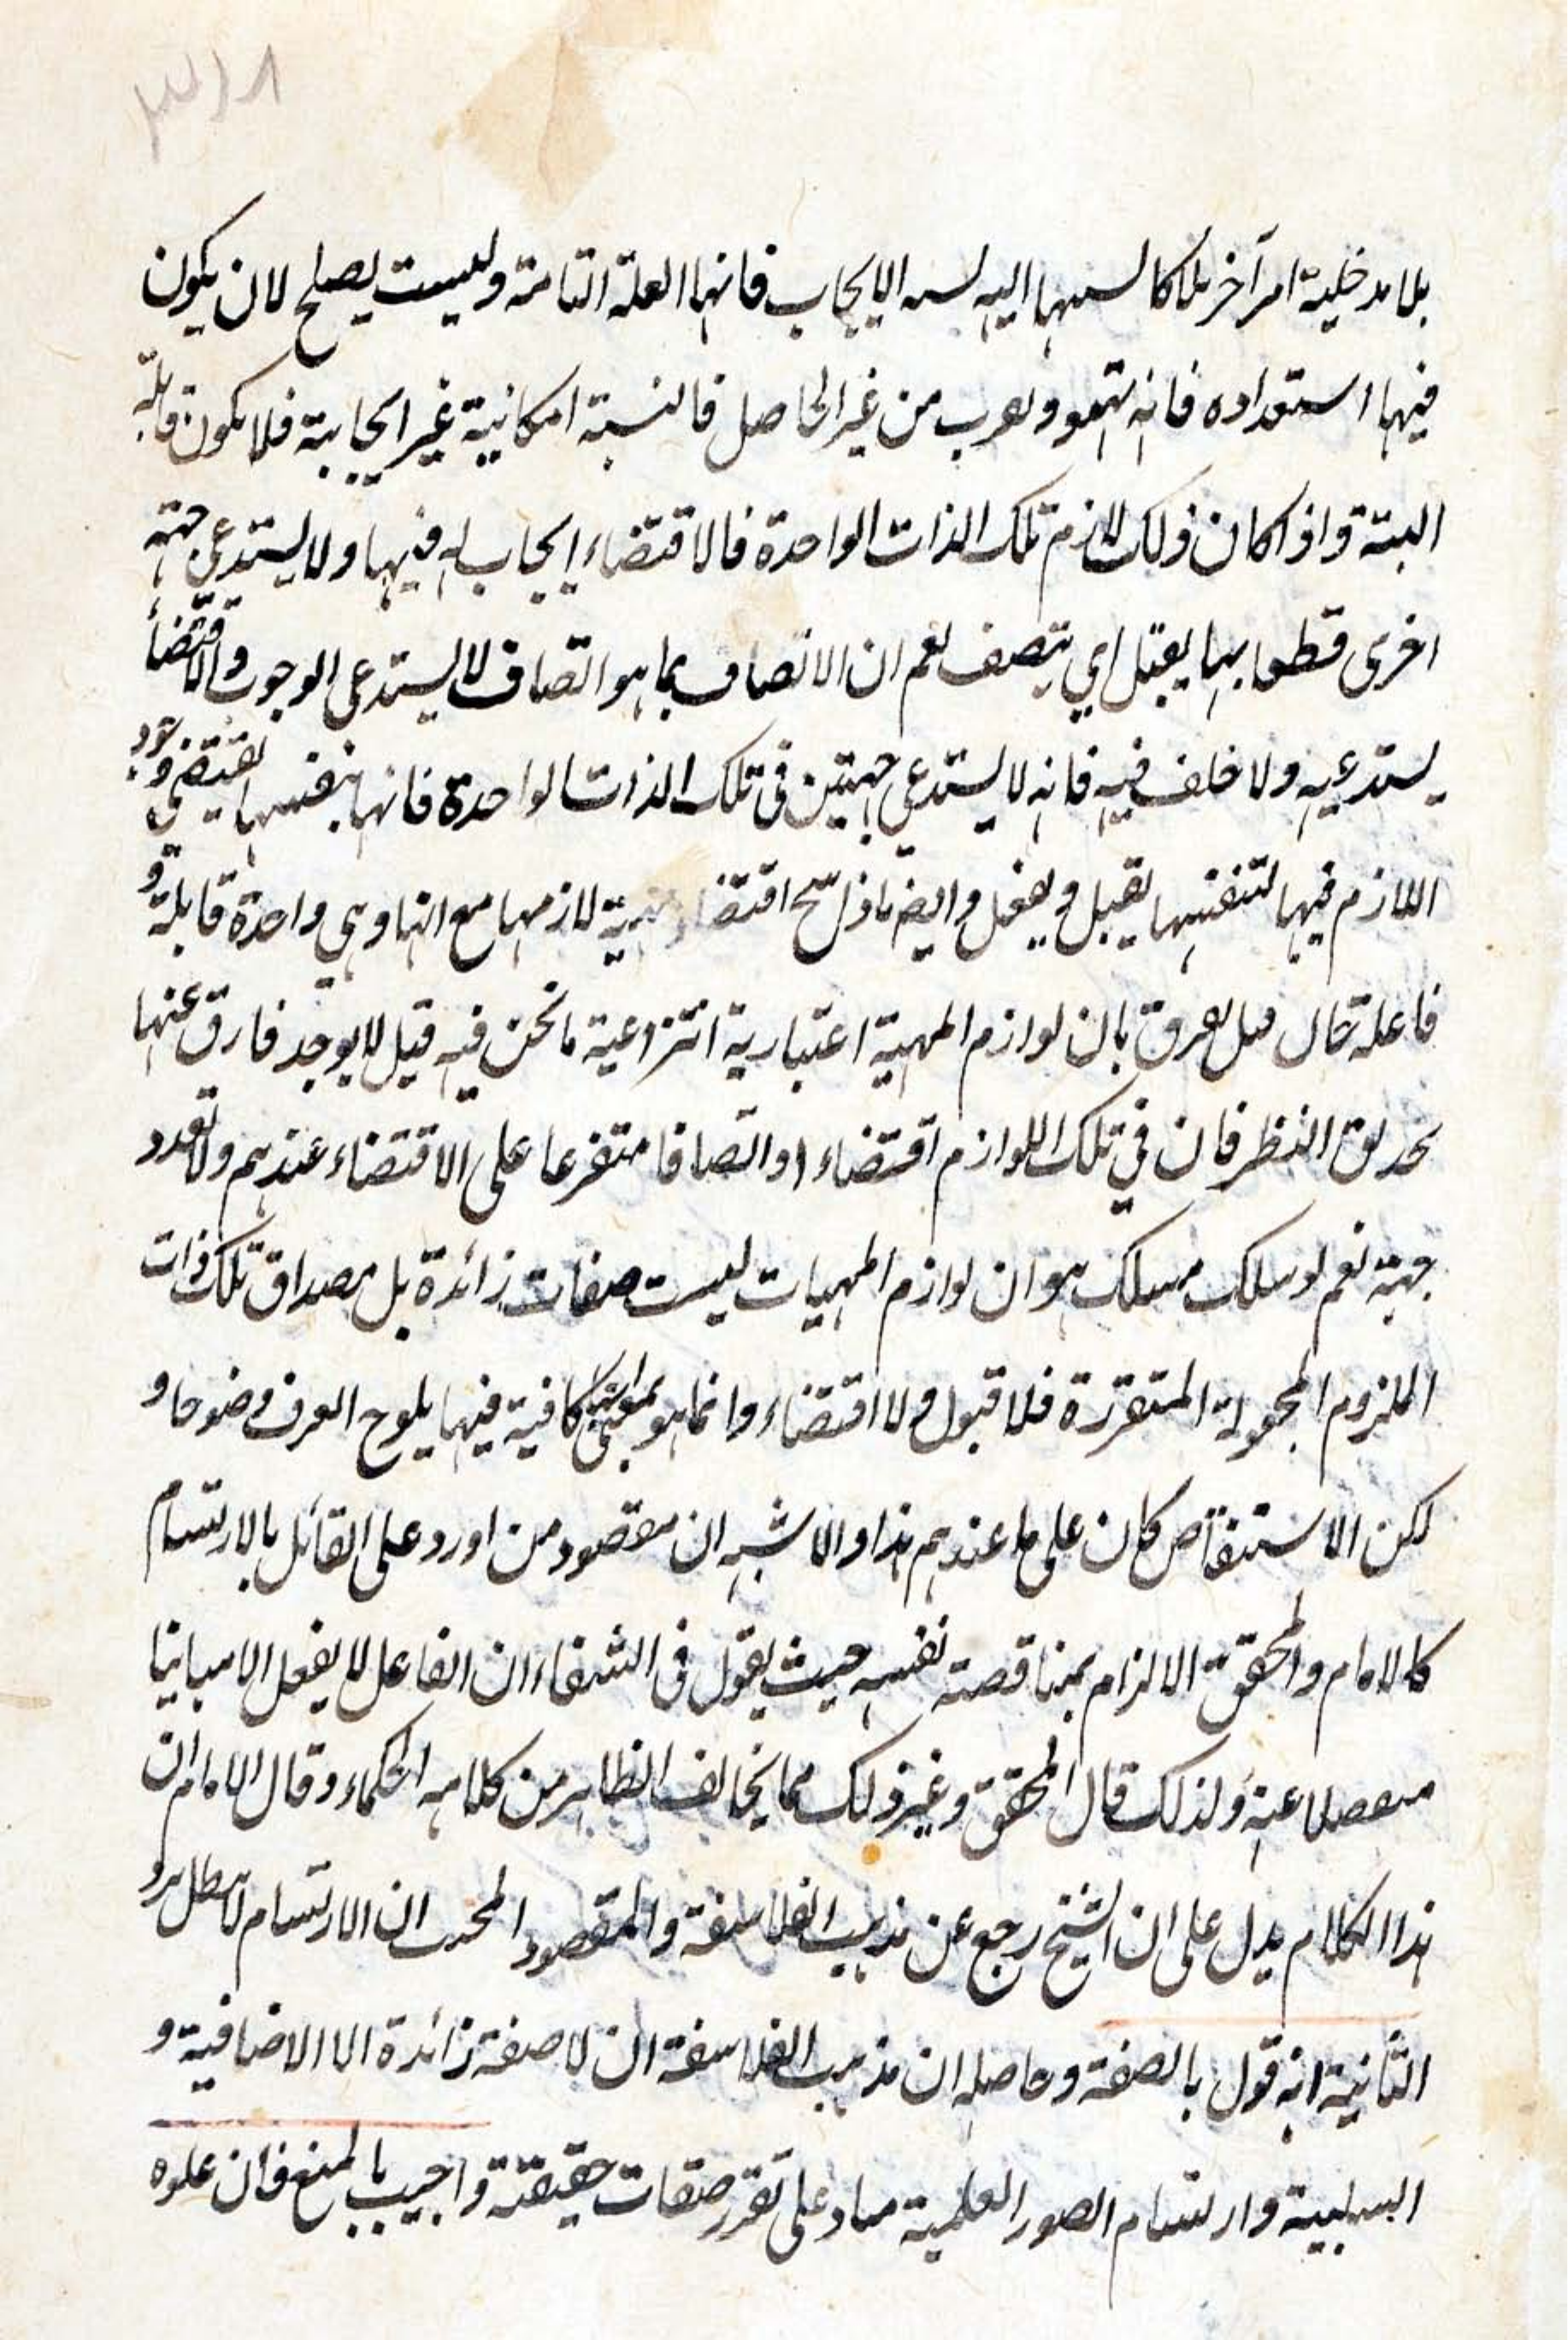 ٣١٨
بلا مدخلية امر آخر اليه الايجاب فانها العلة التامة وليست يصلح لان يكون
فيها استعداده فانه من غير الحاصل فالنسبة امكانية غير ايجابية فلا يكون قابلة
البتة واذا كان ذلك لازم تلك الذات الواحدة فالاقتضاء ايجاب له فيها ولا يستدعي جهة
اخرى قط بها يقبل اي يتصف نعم ان الاتصاف بما هو اتصاف لا يستدعي الوجوب والاقتضاء
يستدعيه ولا خلف فيه فانه لا يستدعي جهتين في تلك الذات الواحدة فانها بنفسها يقتضي وجود
اللازم فيها فنفسها يقبل ويفعل وايضا لازمها مع انها وهي واحدة قابلة و
فاعلة بان لوازم المهية اعتبارية انتزاعية ما نحن فيه قيل لا يوجد فارق عنها
النظر فان في تلك اللوازم اقتضاء او اتصافا متفرعا على الاقتضاء عندهم ولا تعدد
جهة نعم لو سلك مسلك هو ان لوازم المهيات ليست صفات زائدة بل مصداق تلك ذات
الملزوم المجعولة المتقررة فلا قبول ولا اقتضاء وانما هو بمعنى كافية فيها يلوح الفرق وضوحا و
لكن الاستنقاض كان على ما عندهم هذا والاشبه ان مقصود من اورد على القائل بالارتسام
كالامام والمحقق الالزام بمناقصة نفسه حيث يقول في الشفاء ان الفاعل لا يفعل الا مباينا
منفصلا عنه ولذلك قال المحقق وغير ذلك مما يخالف الظاهر من كلامه الحكماء وقال الامام ان
هذا الكلام يدل على ان الشيخ رجع عن مذهب الفلاسفة والمقصود ان الارتسام
الثانية انه قول بالصفة وحاصله ان مذهب الفلاسفة ان لا صفة زائدة الا الاضافية و
السلبية وارتسام الصور العلمية مناد على تقرر صفات حقيقة واجيب بالمنع فان علوه